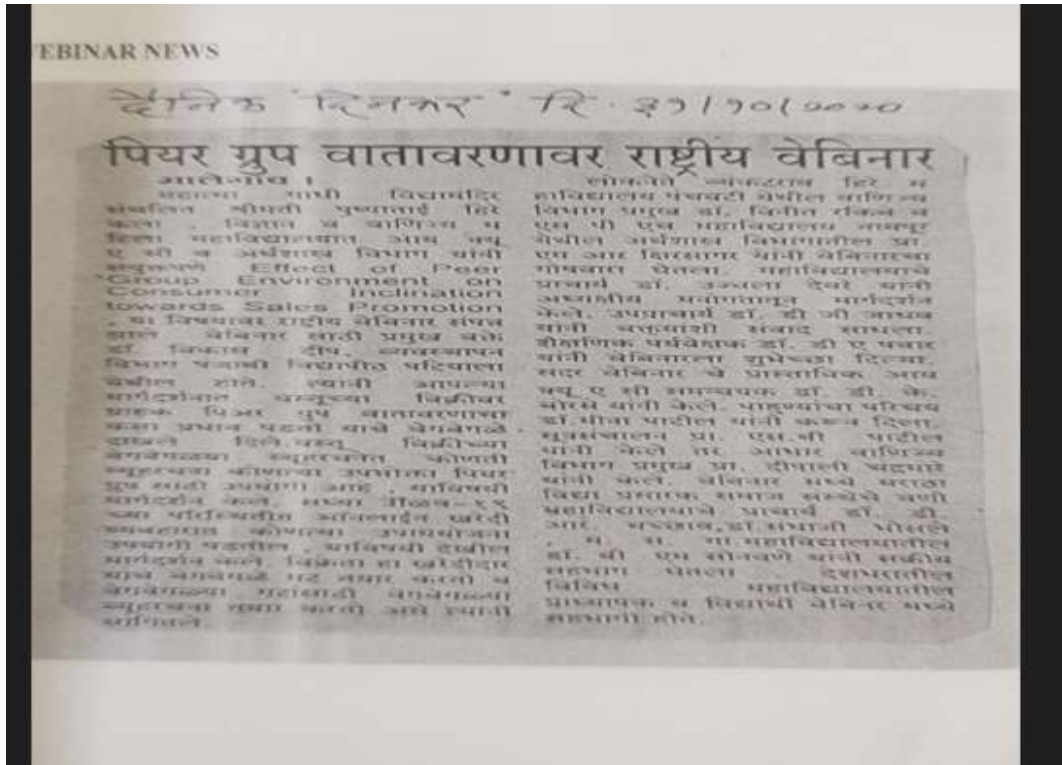 EBINAR NEWS
दैनिक "दिनकर" दि. ३१/१०/२०२०
पियर ग्रुप वातावरणावर राष्ट्रीय वेबिनार
महात्मा गांधी विद्यामंदिर
संचलित श्रीमती पुष्पाताई हिरे
कला , विज्ञान व वाणिज्य म
हिला महाविद्यालयात आय क्यू
ए सी व अर्थशास्त्र विभाग यांनी
संयुक्तपणे Effect of Peer
Group Environment on
Consumer Inclination
towards Sales Promotion
, या विषयावर राष्ट्रीय वेबिनार संपन्न
झाले वेबिनार साठी प्रमुख वक्ते
डॉ. विकास दीप, व्यवस्थापन
विभाग पंजाबी विद्यापीठ पटियाला
येथील होते. त्यांनी आपल्या
मार्गदर्शनात वस्तूच्या विक्रीवर
ग्राहक पिअर ग्रुप वातावरणाचा
कसा प्रभाव पडतो याचे वेगवेगळे
दाखले दिले.वस्तू विक्रीच्या
वेगवेगळ्या व्यूहरचनेत कोणती
व्यूहरचना कोणत्या उपभोक्ता पियर
ग्रुप साठी उपयोगी आहे याविषयी
मार्गदर्शन केले. सध्या
च्या परिस्थितीत ऑनलाईन खरेदी
व्यवहारात कोणत्या उपाययोजना
उपयोगी पडतील , याविषयी देखील
मार्गदर्शन केले. विक्रेता हा खरेदीदार
यांचे वेगवेगळे गट तयार करतो व
वेगवेगळ्या गटांसाठी वेगवेगळ्या
व्यूहरचना तयार करतो असे त्यांनी
सांगितले.
लोकनेते व्यंकटराव हिरे म
हाविद्यालय पंचवटी येथील वाणिज्य
विभाग प्रमुख डॉ. विनीत रकिब व
एस पी एच महाविद्यालय नामपूर
येथील अर्थशास्त्र विभागातील प्रा.
एम आर क्षिरसागर यांनी वेबिनारचा
गोषवारा घेतला. महाविद्यालयाचे
प्राचार्य डॉ. उज्वला देवरे यांनी
अध्यक्षीय मनोगतातून मार्गदर्शन
केले. उपप्राचार्य डॉ. डी जी जाधव
यांनी वक्त्यांशी संवाद साधला.
शैक्षणिक पर्यवेक्षक डॉ. डी ए पवार
यांनी वेबिनारला शुभेच्छा दिल्या.
सदर वेबिनार चे प्रास्ताविक आय
क्यू ए सी समन्वयक डॉ. डी. के.
बोरसे यांनी केले. पाहुण्यांचा परिचय
डॉ.मीना पाटील यांनी करून दिला.
सूत्रसंचालन प्रा. एस.बी पाटील
यांनी केले तर आभार वाणिज्य
विभाग प्रमुख प्रा. दीपाली चंद्रमोरे
यांनी केले. वेबिनार मध्ये मराठा
विद्या प्रसारक समाज संस्थेचे वणी
महाविद्यालयाचे प्राचार्य डॉ. डी.
आर. बच्छाव,डॉ.संभाजी भोसले
, म. स. गा.महाविद्यालयातील
डॉ. बी एम सोनवणे यांनी सक्रीय
सहभाग घेतला . देशभरातील
विविध महाविद्यालयातील
प्राध्यापक व विद्यार्थी वेबिनार मध्ये
सहभागी होते.